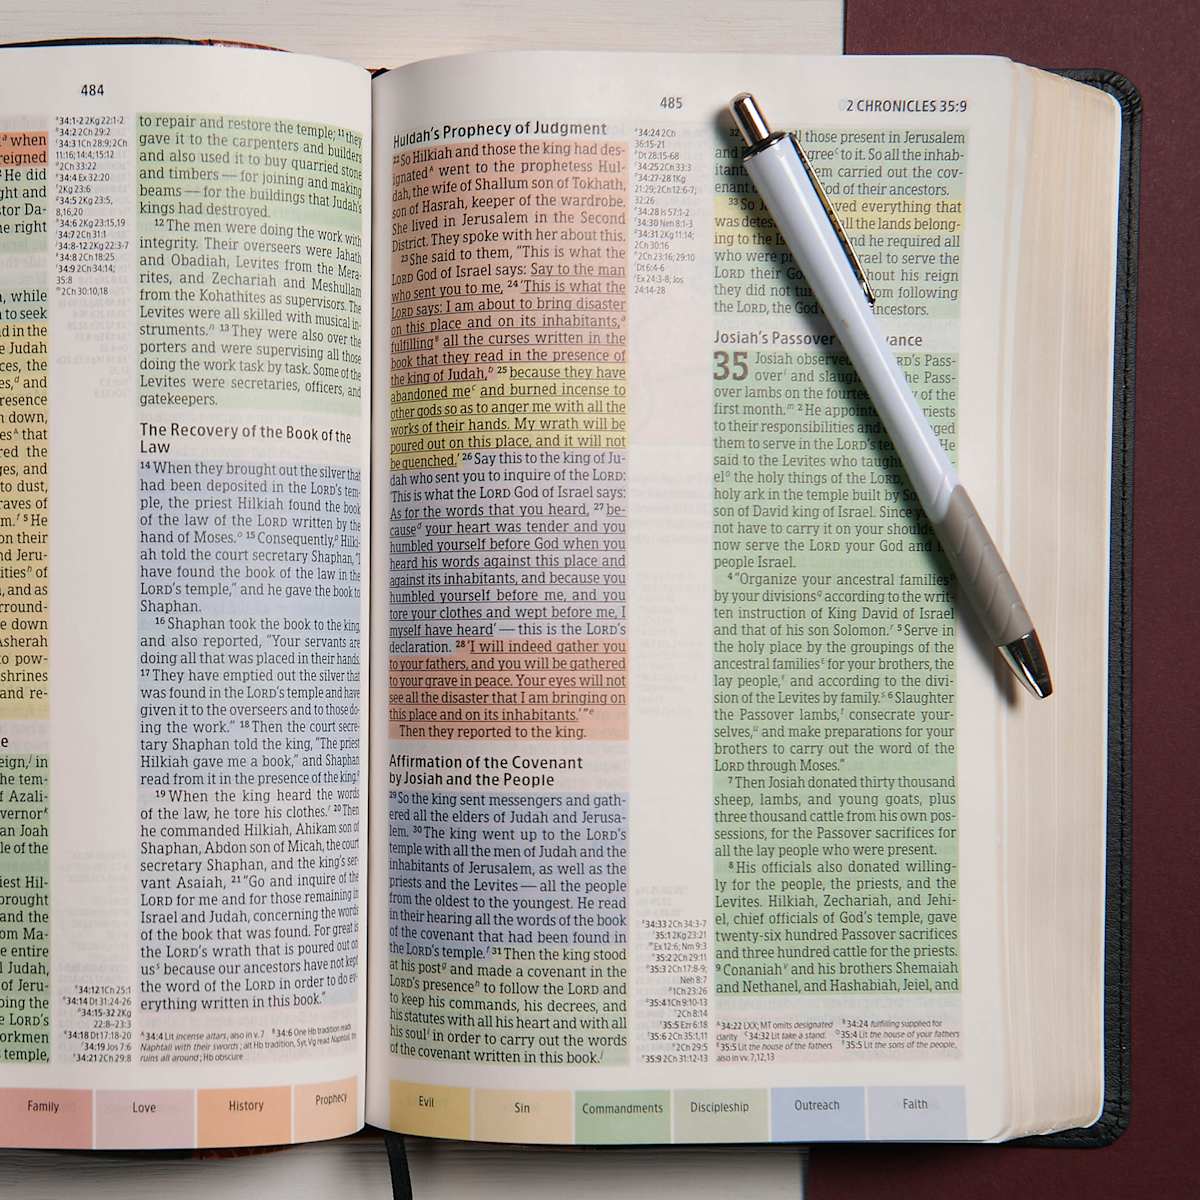 484
when
reigned
He did
ght and
stor Da-
he right
, while
to seek
d in the
e Judah
ces, the
es,ᵈ and
resence
down,
esᴬ that
red the
ges, and
to dust,
raves of
m.ᶠ ⁵ He
on their
nd Jeru-
itiesᴰ of
, and as
rround-
e down
Asherah
to pow-
shrines
and re-
e
eign,ʲ in
he tem-
f Azali-
vernorᵏ
an Joah
le of the
iest Hil-
brought
and the
om Ma-
e entire
l Judah,
of Jeru-
oing the
e LORD'S
orkmen
temple,
ᵃ34:1-2 2Kg 22:1-2
34:2 2Ch 29:2
34:3 1Ch 28:9; 2Ch
11:16; 14:4; 15:12
2Ch 33:22
34:4 Ex 32:20
2Kg 23:6
34:5 2Kg 23:5,
8,16,20
34:6 2Kg 23:15,19
34:7 2Ch 31:1
34:8-12 2Kg 22:3-7
34:8 2Ch 18:25
34:9 2Ch 34:14;
35:8
2Ch 30:10,18
34:12 1Ch 25:1
34:14 Dt 31:24-26
34:15-32 2Kg
22:8–23:3
34:18 Dt 17:18-20
34:19 Jos 7:6
34:21 2Ch 29:8
to repair and restore the temple; ¹¹ they
gave it to the carpenters and builders
and also used it to buy quarried stone
and timbers — for joining and making
beams — for the buildings that Judah's
kings had destroyed.
¹² The men were doing the work with
integrity. Their overseers were Jahath
and Obadiah, Levites from the Mera-
rites, and Zechariah and Meshullam
from the Kohathites as supervisors. The
Levites were all skilled with musical in-
struments.ⁿ ¹³ They were also over the
porters and were supervising all those
doing the work task by task. Some of the
Levites were secretaries, officers, and
gatekeepers.
The Recovery of the Book of the
Law
¹⁴ When they brought out the silver that
had been deposited in the LORD'S tem-
ple, the priest Hilkiah found the book
of the law of the LORD written by the
hand of Moses.ᵒ ¹⁵ Consequently,ᵖ Hilki-
ah told the court secretary Shaphan, "I
have found the book of the law in the
LORD'S temple," and he gave the book to
Shaphan.
¹⁶ Shaphan took the book to the king,
and also reported, "Your servants are
doing all that was placed in their hands.
¹⁷ They have emptied out the silver that
was found in the LORD'S temple and have
given it to the overseers and to those do-
ing the work." ¹⁸ Then the court secre-
tary Shaphan told the king, "The priest
Hilkiah gave me a book," and Shaphan
read from it in the presence of the king.
¹⁹ When the king heard the words
of the law, he tore his clothes.ʳ ²⁰ Then
he commanded Hilkiah, Ahikam son of
Shaphan, Abdon son of Micah, the court
secretary Shaphan, and the king's ser-
vant Asaiah, ²¹ "Go and inquire of the
LORD for me and for those remaining in
Israel and Judah, concerning the words
of the book that was found. For great is
the LORD'S wrath that is poured out on
usˢ because our ancestors have not kept
the word of the LORD in order to do ev-
erything written in this book."
ᴬ34:4 Lit incense altars, also in v. 7 ᴮ34:6 One Hb tradition reads
Naphtali with their swords; alt Hb tradition, Syr, Vg read Naphtali, the
ruins all around; Hb obscure
Family
Love
History
Prophecy
485
2 CHRONICLES 35:9
Huldah's Prophecy of Judgment
²² So Hilkiah and those the king had des-
ignatedᴬ went to the prophetess Hul-
dah, the wife of Shallum son of Tokhath,
son of Hasrah, keeper of the wardrobe.
She lived in Jerusalem in the Second
District. They spoke with her about this.
²³ She said to them, "This is what the
LORD God of Israel says: Say to the man
who sent you to me, ²⁴ 'This is what the
LORD says: I am about to bring disaster
on this place and on its inhabitants,ᵃ
fulfillingᴮ all the curses written in the
book that they read in the presence of
the king of Judah,ᵇ ²⁵ because they have
abandoned meᶜ and burned incense to
other gods so as to anger me with all the
works of their hands. My wrath will be
poured out on this place, and it will not
be quenched.' ²⁶ Say this to the king of Ju-
dah who sent you to inquire of the LORD:
'This is what the LORD God of Israel says:
As for the words that you heard, ²⁷ be-
causeᵈ your heart was tender and you
humbled yourself before God when you
heard his words against this place and
against its inhabitants, and because you
humbled yourself before me, and you
tore your clothes and wept before me, I
myself have heard' — this is the LORD'S
declaration. ²⁸ 'I will indeed gather you
to your fathers, and you will be gathered
to your grave in peace. Your eyes will not
see all the disaster that I am bringing on
this place and on its inhabitants.'"ᵉ
Then they reported to the king.
Affirmation of the Covenant
by Josiah and the People
²⁹ So the king sent messengers and gath-
ered all the elders of Judah and Jerusa-
lem. ³⁰ The king went up to the LORD'S
temple with all the men of Judah and the
inhabitants of Jerusalem, as well as the
priests and the Levites — all the people
from the oldest to the youngest. He read
in their hearing all the words of the book
of the covenant that had been found in
the LORD'S temple.ᶠ ³¹ Then the king stood
at his postᵍ and made a covenant in the
LORD'S presenceʰ to follow the LORD and
to keep his commands, his decrees, and
his statutes with all his heart and with all
his soulⁱ in order to carry out the words
of the covenant written in this book.ʲ
ᵃ34:24 2Ch
36:15-21
Dt 28:15-68
34:25 2Ch 33:3
34:27-28 1Kg
21:29; 2Ch 12:6-7;
32:26
34:28 Is 57:1-2
34:30 Neh 8:1-3
34:31 2Kg 11:14;
2Ch 30:16
2Ch 23:16; 29:10
Dt 6:4-6
Ex 24:3-8; Jos
24:14-28
34:33 2Ch 34:3-7
35:1 2Kg 23:21
Ex 12:6; Nm 9:3
35:2 2Ch 29:11
35:3 2Ch 17:8-9;
Neh 8:7
1Ch 23:26
35:4 1Ch 9:10-13
2Ch 8:14
35:5 Ezr 6:18
35:6 2Ch 35:1,11
2Ch 29:5
35:9 2Ch 31:12-13
³² all those present in Jerusalem
and agreeᶜ to it. So all the inhab-
itants em carried out the cov-
enant od of their ancestors.
³³ So ved everything that
was detes all the lands belong-
ing to the Is and he required all
who were p rael to serve the
LORD their Go hout his reign
they did not tu om following
the LORD, the God ancestors.
Josiah's Passover vance
35 Josiah observed RD'S Pass-
overˡ and slaugh he Pass-
over lambs on the fourtee y of the
first month.ᵐ ² He appointe riests
to their responsibilities and ged
them to serve in the LORD'S te He
said to the Levites who taugh
elᵒ the holy things of the LORD,
holy ark in the temple built by So
son of David king of Israel. Since y
not have to carry it on your shoulde
now serve the LORD your God and
people Israel.
⁴ "Organize your ancestral familiesᴰ
by your divisionsᑫ according to the writ-
ten instruction of King David of Israel
and that of his son Solomon.ʳ ⁵ Serve in
the holy place by the groupings of the
ancestral familiesᴱ for your brothers, the
lay people,ᶠ and according to the divi-
sion of the Levites by family.ˢ ⁶ Slaughter
the Passover lambs,ᵗ consecrate your-
selves,ᵘ and make preparations for your
brothers to carry out the word of the
LORD through Moses."
⁷ Then Josiah donated thirty thousand
sheep, lambs, and young goats, plus
three thousand cattle from his own pos-
sessions, for the Passover sacrifices for
all the lay people who were present.
⁸ His officials also donated willing-
ly for the people, the priests, and the
Levites. Hilkiah, Zechariah, and Jehi-
el, chief officials of God's temple, gave
twenty-six hundred Passover sacrifices
and three hundred cattle for the priests.
⁹ Conaniahᵛ and his brothers Shemaiah
and Nethanel, and Hashabiah, Jeiel, and
ᴬ34:22 LXX; MT omits designated ᴮ34:24 fulfilling supplied for
clarity ᶜ34:32 Lit take a stand. ᴰ35:4 Lit the house of your fathers
ᴱ35:5 Lit the house of the fathers ᶠ35:5 Lit the sons of the people,
also in vv. 7,12,13
Evil
Sin
Commandments
Discipleship
Outreach
Faith